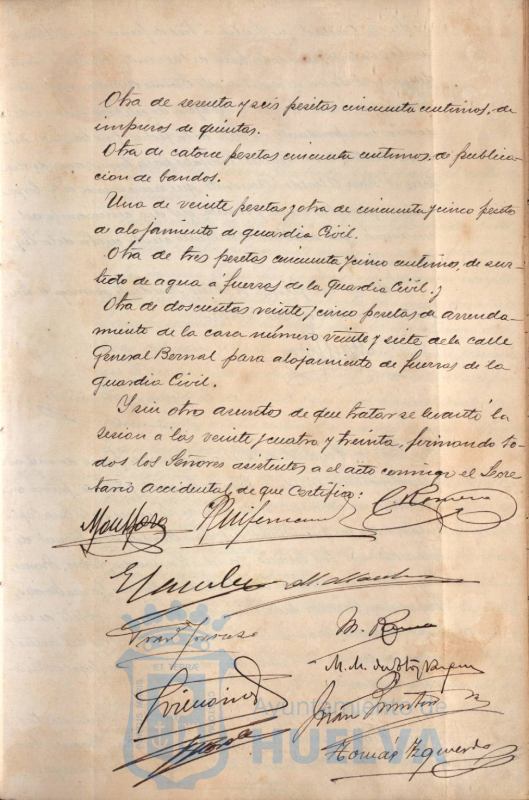 Otra de sesenta y seis pesetas cincuenta centimos, de
impresos de quintas.
Otra de catorce pesetas cincuenta centimos, de publica-
cion de bandos.
Una de veinte pesetas y otra de cincuenta y cinco pesetas
de alojamiento de guardia Civil.
Otra de tres pesetas cincuenta y cinco centimos, de sur-
tido de agua á fuerzas de la Guardia Civil. y
Otra de doscientas veinte y cinco pesetas de arrenda-
miento de la casa número veinte y siete de la calle
General Bernal para alojamiento de fuerzas de la
guardia Civil.
Y sin otros asuntos de que tratar se levantó la
sesion a las veinte y cuatro y treinta, firmando to-
dos los Señores asistentes a el acto conmigo el Secre
tario accidental de que Certifico:
C. Romero
M.
Juan
Tomás Izquierdo
Ayuntamiento de
HUELVA